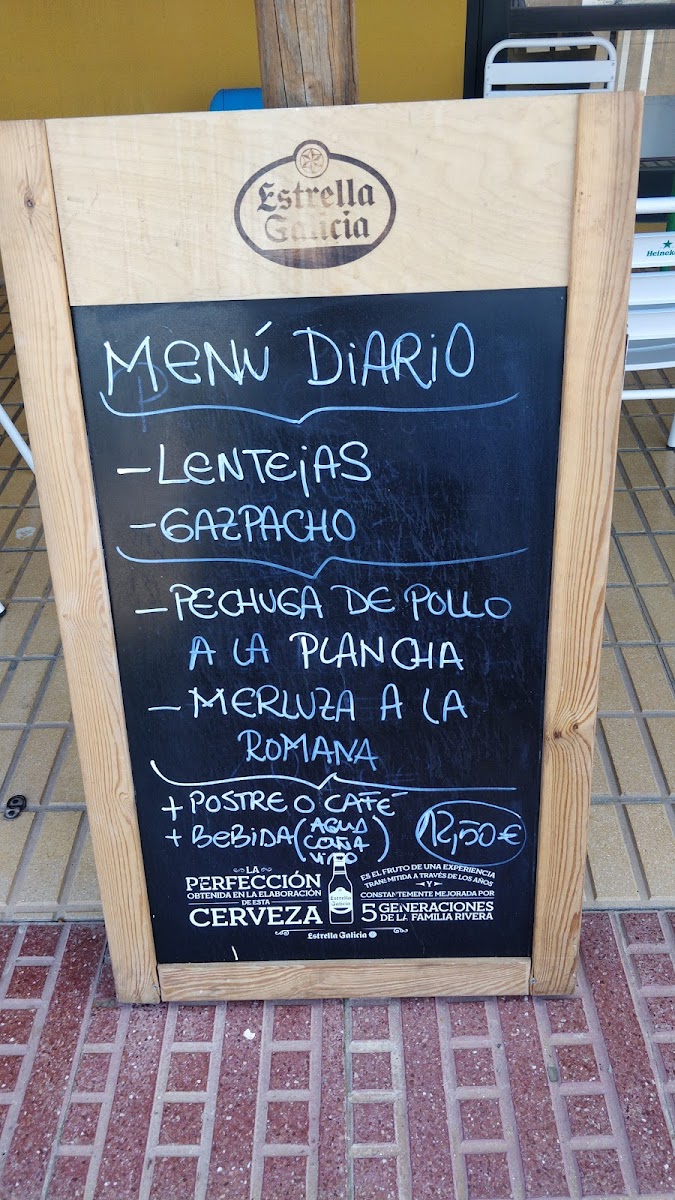 Estrella
Galicia
Heineke
MENÚ DiARiO
- LENTEjAS
- GAZPACHO
- PECHUGA DE POLLO
A LA PLANCHA
- MERLUZA A LA
ROMANA
+ POSTRE O CAFÉ
+ BEBIDA (AGUA
CAÑA
VINO)
12,50€
LA
PERFECCIÓN
OBTENIDA EN LA ELABORACIÓN
DE ESTA
CERVEZA
Estrella
Galicia
ES EL FRUTO DE UNA EXPERIENCIA
TRANSMITIDA A TRAVÉS DE LOS AÑOS
Y
CONSTANTEMENTE MEJORADA POR
5 GENERACIONES
DE LA FAMILIA RIVERA
Estrella Galicia